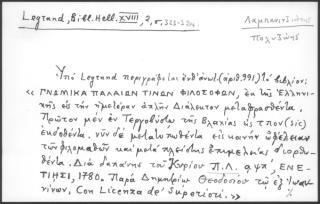 Legrand, Bibl. Hell. XVIII, 2, σ. 323-324.
Λαμπανιτζιώτης
Πολυζώης
Ὑπὸ Legrand περιγράφεται ἐνθ' ἀνωτ. (ἀρ. 991) τὸ βιβλίον:
« ΓΝΩΜΙΚΑ ΠΑΛΑΙΩΝ ΤΙΝΩΝ ΦΙΛΟΣΟΦΩΝ, ἐκ τῆς Ἑλληνι-
κῆς εἰς τὴν ἡμετέραν ἁπλῆν Διάλεκτον μεταφρασθέντα.
Πρῶτον μὲν ἐν Τεργοβύστῳ τῆς Βλαχίας ὡς τπον (sic)
ἐκδοθέντα. νῦν δὲ μετατυπωθέντα εἰς κοινὴν ὠφέλειαν
τῶν φιλομαθῶν καὶ μετὰ πλείστης ἐπιμελείας διορθω-
θέντα. Διὰ δαπάνης τοῦ Κυρίου Π.Λ. ͵αψπ', ΕΝΕ-
ΤΙΗΣΙ, 1780. Παρὰ Δημητρίῳ Θεοδοσίου τῷ ἐξ Ἰωαν-
νίνων, Con Licenza de' Superiori. »